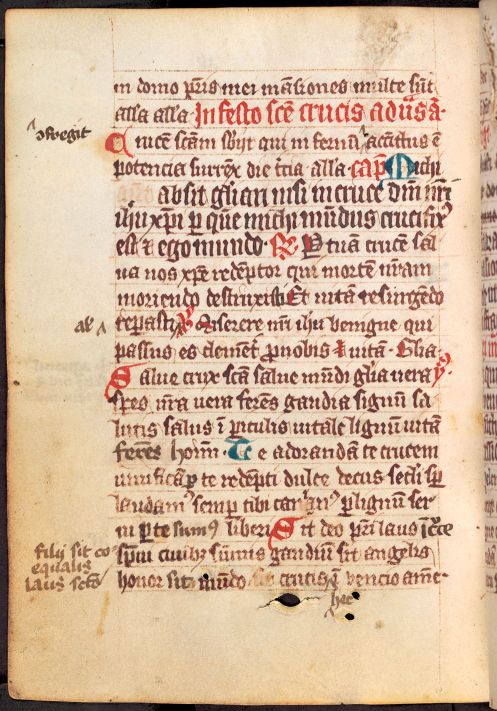 in domo pr̄is mei mansiones multe sūt
alla alla· In festo sc̄e crucis ad
ɔfregit
Crucē sc̄am qui in fernū accīctus ē
potencia surrex̄ die t̄cia alla· cap̄ Michi
absit gl̄iari nisi in cruce dn̄i nr̄i
ih̄u xp̄i p quē michi mūdus crucifix⁹
est ⁊ ego mundo· R̄ P tuā crucē sal
ua nos xp̄e redēptor qui mortē nr̄am
moriendo destruxisti Et uitā resurgēdo
al̄
reparasti V̄ Miserere nr̄i ih̄u benigne qui
passus es clement̄ pro nobis ⁊ uitā· Gl̄ia·
Salue crux sc̄a salue mūdi gl̄ia uera
spes nr̄a uera ferēs gaudia signū sa
lutis salus ī piculis uitale lignū uitā
ferēs hom̄· Te adorandā te crucem
uiuificā p te redēpti dulce decus secl̄i sp̄
laudam⁹ semp tibi p lignū ser
ui p te sum⁹ liberi Sit deo pr̄i laus ī cͨce
filij sit co
equalis
laus
sp̄ui ciuibȝ sūmis gaudiū sit angelis
honor sit mūdo crucis ame·
hec